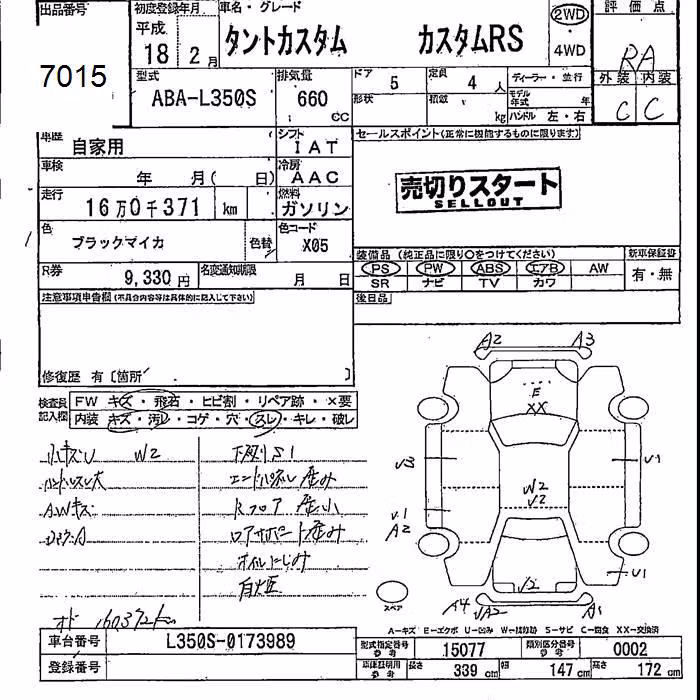 出品番号
7015
初度登録年月
平成
18 年 2 月
車名・グレード
タントカスタム カスタムRS
2WD
4WD
評価点
RA
外装 内装
C C
型式
ABA-L350S
排気量
660 cc
ドア 5
定員 4 人
形状
積載 kg
ディーラー・並行
モデル年式 年
ハンドル 左・右
車歴
自家用
シフト
IAT
車検
年 月( 日)
冷房
AAC
走行
16万0千371 km
燃料
ガソリン
色
ブラックマイカ
色替
色コード
X05
R券
9,330 円
名変通知期限
月 日
セールスポイント(正常に機能するものに限ります)
売切りスタート
SELLOUT
装備品 (純正品に限り○をつけてください)
新車保証書
PS PW ABS エアB AW
SR ナビ TV カワ
有・無
後日品
注意事項申告欄(不具合内容等は具体的に記入して下さい)
修復歴 有〔箇所 〕
検査員記入欄
FW キズ・飛石・ヒビ割・リペア跡・×要
内装 キズ・汚レ・コゲ・穴・スレ・キレ・破レ
小キズU W2
ハンドルスレ大
A.Wキズ
下廻りS1
エンドパネル歪み
Rフロア 歪小
ロアサポート歪み
オイルにじみ
オド 160372km
A2 A3
E
XX
W2
U2
U1
U1
A2
U1
U2
スペア
A4 UA2 A1
A=キズ E=エクボ U=凹み W=補修跡 S=サビ C=腐食 XX=交換済
車台番号
L350S-0173989
登録番号
型式指定番号 参考
15077
類別区分番号 参考
0002
車庫証明用 参考
長さ 339 cm
幅 147 cm
高さ 172 cm